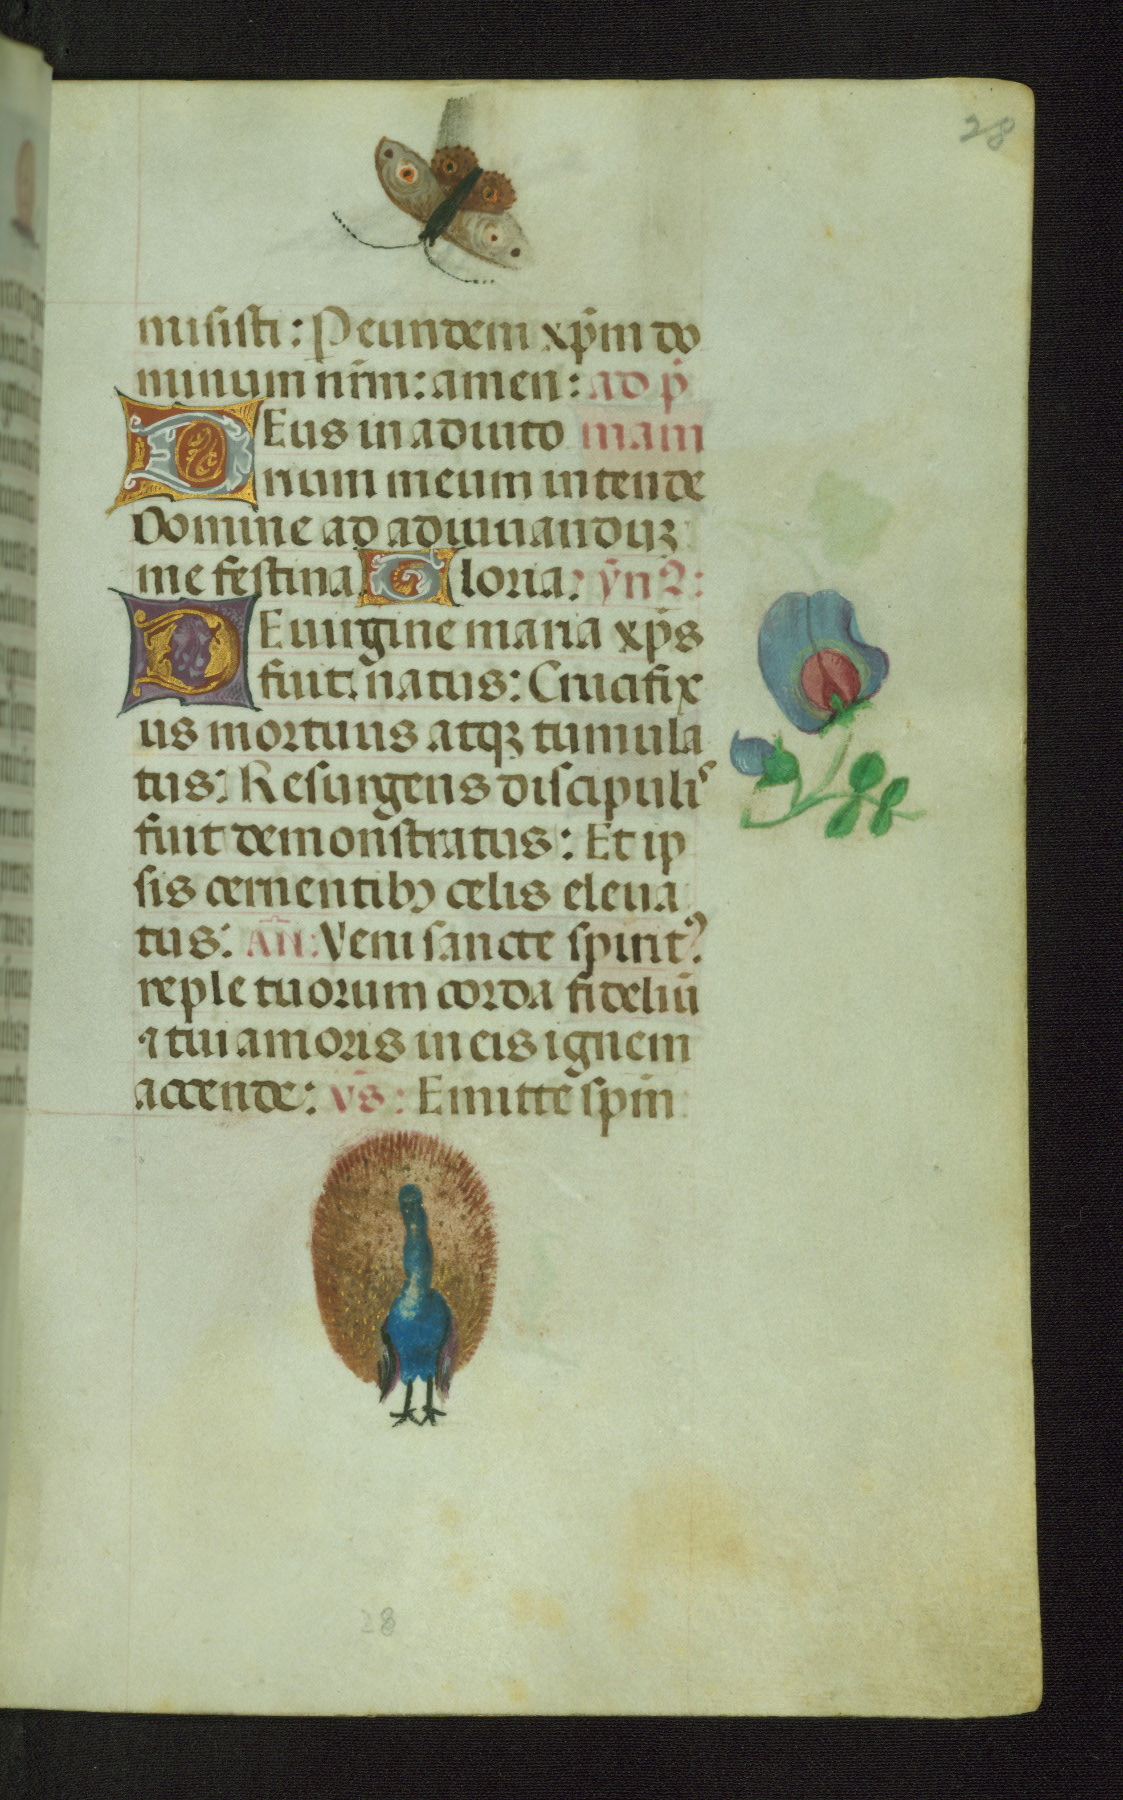 28
misisti: P eundem xp̄m do
minum nr̄m: amen: ad p̄
DEus in adiuto mam
rium meum intende
Domine ad adiuuanduꝫ
me festina Gloria: ȳn9:
DE uirgine maria xp̄s
fuit natus: Crucifix
us mortuus atqꝫ tumula
tus: Resurgens discipulis
fuit demonstratus: Et ip
sis cernentibꝫ celis eleua
tus: An̄: Veni sancte spiritꝰ:
reple tuorum corda fideliū
⁊ tui amoris in eis ignem
accende: v̄s: Emitte spm̄
28